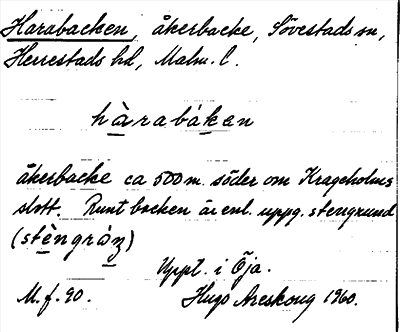 Harabacken, åkerbacke, Sövestads sn,
Herrestads hd, Malm. l.
hàrabáken
åkerbacke ca 500 m. söder om Krageholms
slott. Runt backen är enl. uppg. stengrund
(stèngrónz)
Uppt. i Öja.
M.f. 90. Hugo Areskoug 1960.